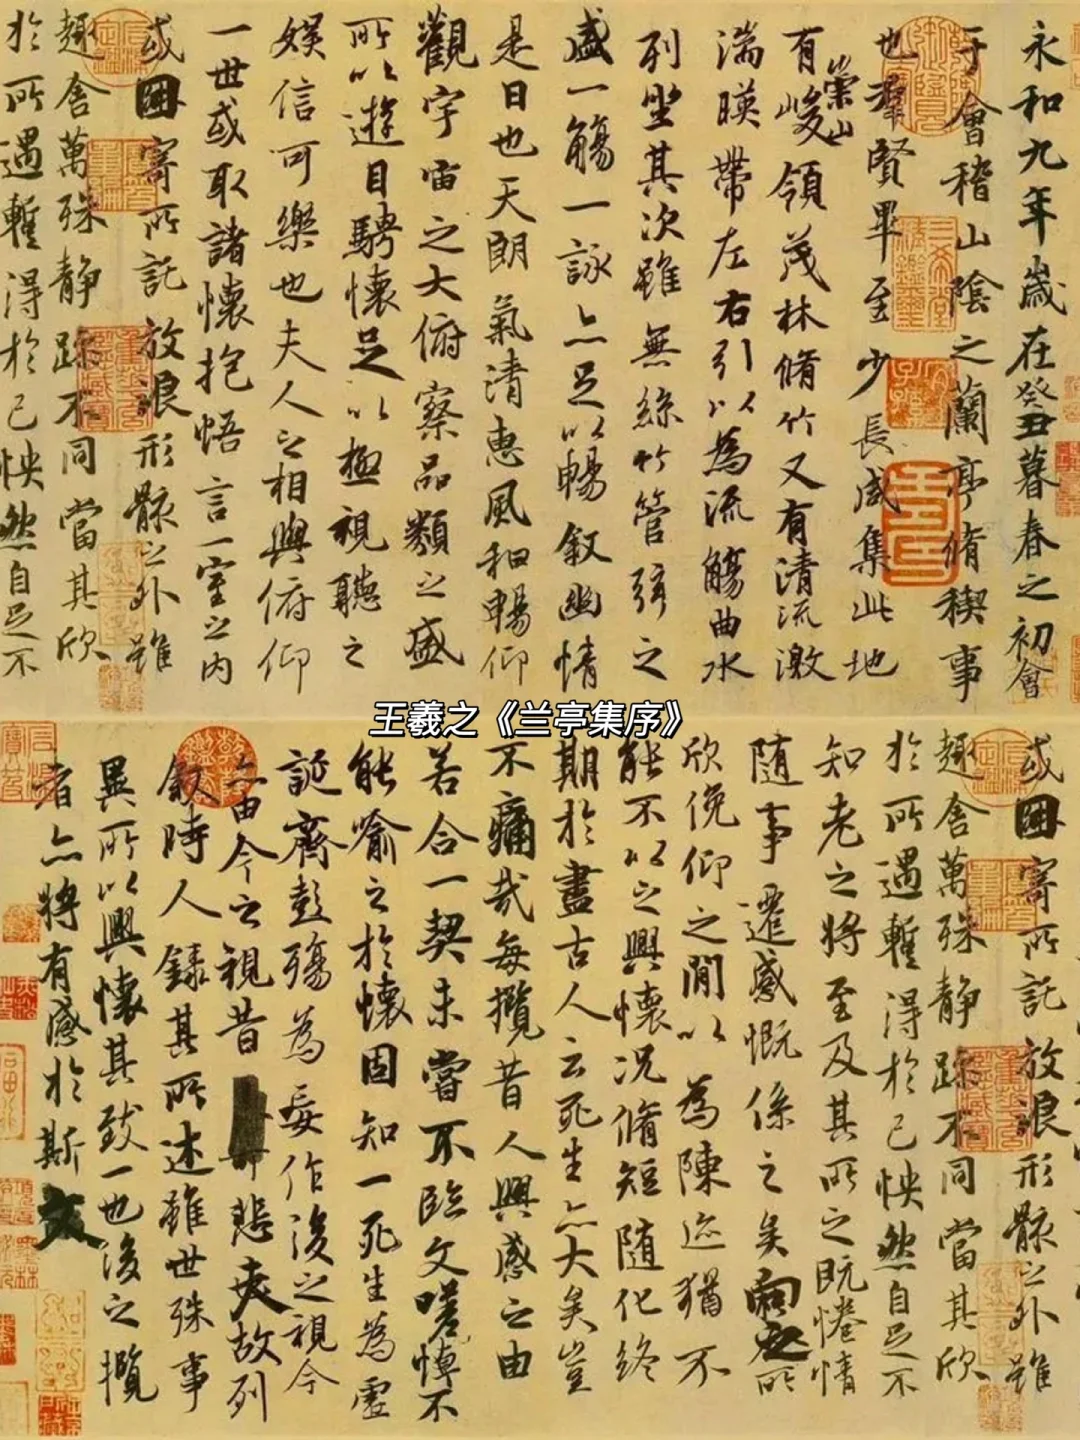 永和九年歲在癸丑暮春之初會
于會稽山陰之蘭亭脩稧事
也羣賢畢至少長咸集此地
有崇山峻領茂林脩竹又有清流激
湍暎帶左右引以為流觴曲水
列坐其次雖無絲竹管弦之
盛一觴一詠亦足以暢叙幽情
是日也天朗氣清惠風和暢仰
觀宇宙之大俯察品類之盛
所以遊目騁懷足以極視聽之
娛信可樂也夫人之相與俯仰
一世或取諸懷抱悟言一室之內
或因寄所託放浪形骸之外雖
趣舍萬殊靜躁不同當其欣
於所遇暫得於己怏然自足不
王羲之《兰亭集序》
或因寄所託放浪形骸之外雖
趣舍萬殊靜躁不同當其欣
於所遇暫得於己怏然自足不
知老之將至及其所之既惓情
隨事遷感慨係之矣向之所
欣俛仰之閒以為陳迹猶不
能不以之興懷況脩短隨化終
期於盡古人云死生亦大矣豈
不痛哉每攬昔人興感之由
若合一契未嘗不臨文嗟悼不
能喻之於懷固知一死生為虛
誕齊彭殤為妄作後之視今
亦由今之視昔悲夫故列
叙時人錄其所述雖世殊事
異所以興懷其致一也後之攬
者亦將有感於斯文